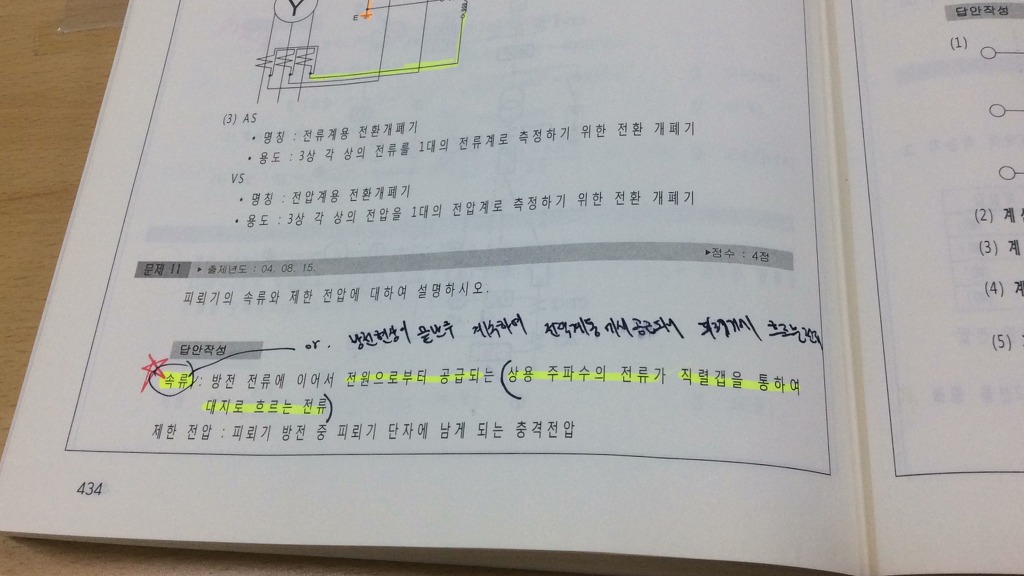 Y
E
(3) AS
• 명칭 : 전류계용 전환개폐기
• 용도 : 3상 각 상의 전류를 1대의 전류계로 측정하기 위한 전환 개폐기
VS
• 명칭 : 전압계용 전환개폐기
• 용도 : 3상 각 상의 전압을 1대의 전압계로 측정하기 위한 전환 개폐기
문제 11 ▶ 출제년도 : 04. 08. 15. ▶점수 : 4점
피뢰기의 속류와 제한 전압에 대하여 설명하시오.
or. 방전현상이 끝난후 계속하여 전력계통에서 공급되어 피뢰기에 흐르는 전류
답안작성
속류 : 방전 전류에 이어서 전원으로부터 공급되는 (상용 주파수의 전류가 직렬갭을 통하여
대지로 흐르는 전류)
제한 전압 : 피뢰기 방전 중 피뢰기 단자에 남게 되는 충격전압
434
답안작성
(1)
(2) 계
(3) 계
(4) 계
(5)